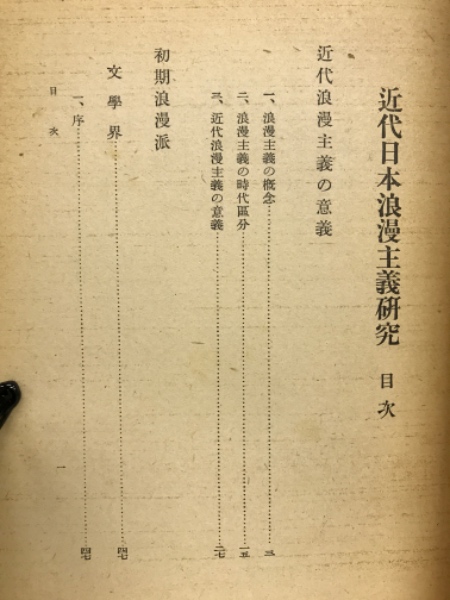 近代日本浪漫主義研究 目次
近代浪漫主義の意義
一、浪漫主義の概念……三
二、浪漫主義の時代區分……一五
三、近代浪漫主義の意義……二七
初期浪漫派
文學界……四七
一、序……四七
目次 一